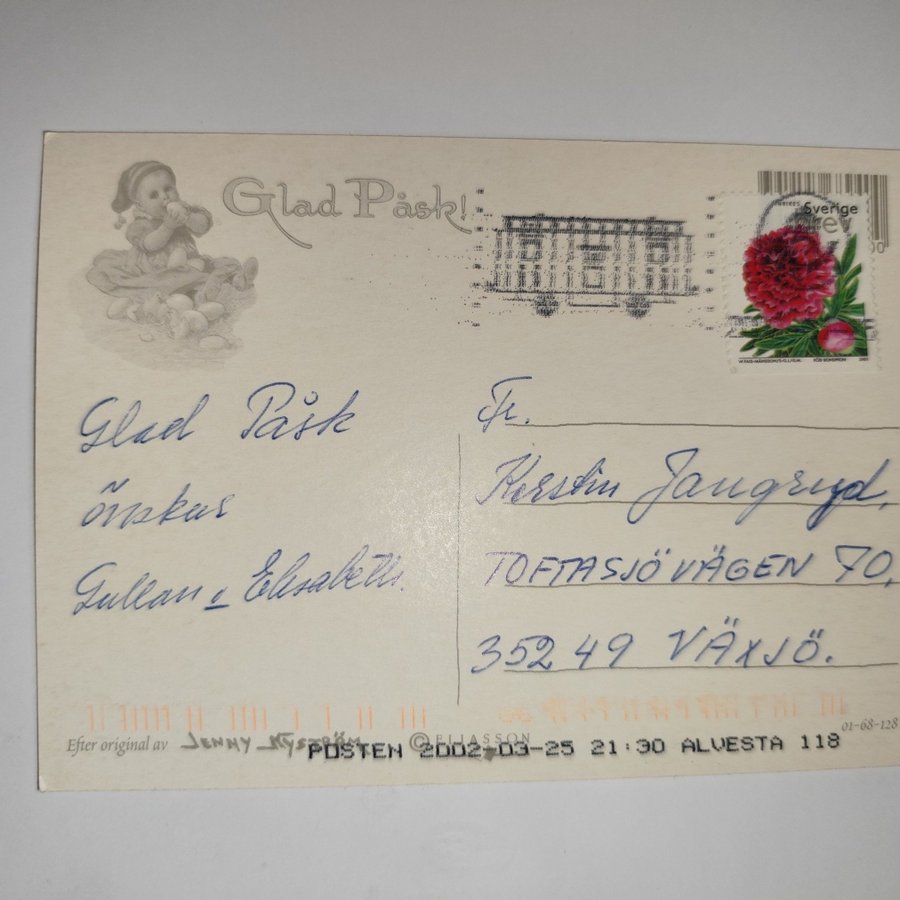 Glad Påsk!
Sverige
Brev
Glad Påsk
önskar
Gullan o Elisabeth.
Fr.
Kerstin Jangryd,
TOFTASJÖVÄGEN 70,
352 49 VÄXJÖ.
01-68-128
Efter original av JENNY NYSTRÖM © ELIASSON
POSTEN 2002-03-25 21:30 ALVESTA 118